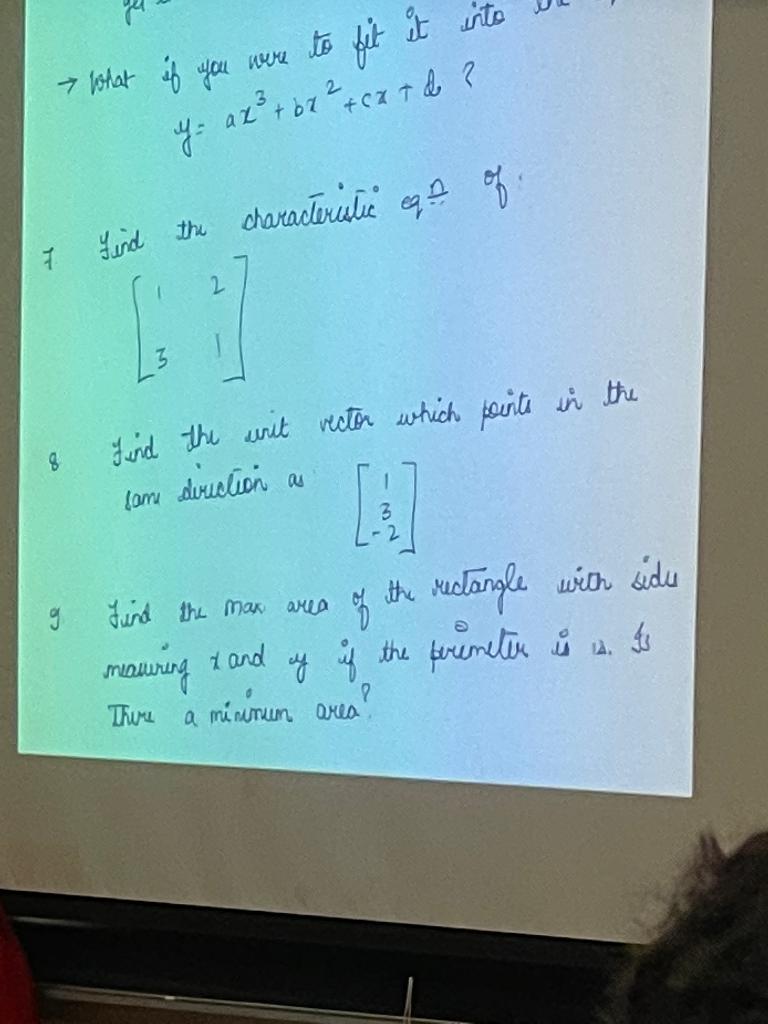 → What if you were to fit it into
y = ax³ + bx² + cx + d ?
7 Find the characteristic eqn of:
[1 2
3 1]
8 Find the unit vector which points in the
same direction as [1
3
-2]
9 Find the max area of the rectangle with sides
measuring x and y if the perimeter is 12. Is
There a minimum area?